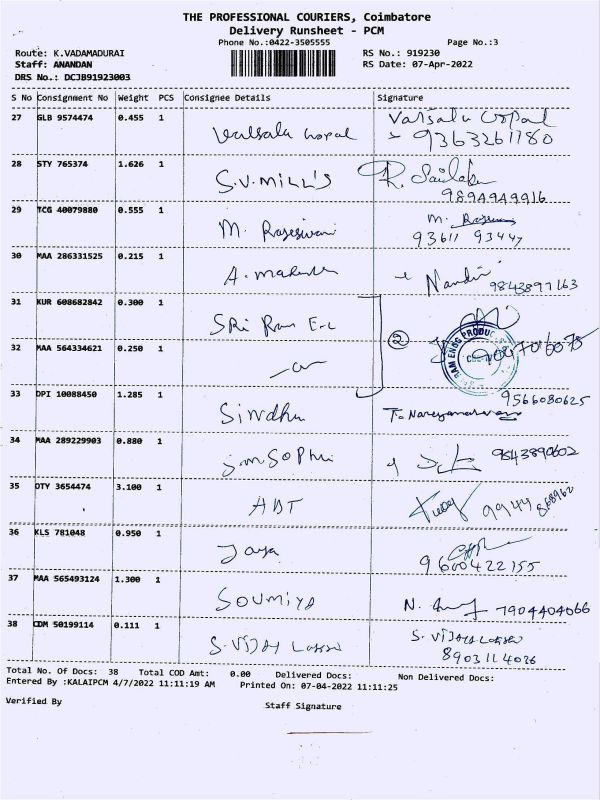 THE PROFESSIONAL COURIERS, Coimbatore
Delivery Runsheet - PCM
Phone No.:0422-3505555 Page No.:3
Route: K.VADAMADURAI RS No.: 919230
Staff: ANANDAN RS Date: 07-Apr-2022
DRS No.: DCJ891923003
S No Consignment No Weight PCS Consignee Details Signature
27 GLB 9574474 0.455 1 Valsala Gopal Valsala Gopal
9363261180
28 STY 765374 1.626 1 S.V. MILL'S R.
9894949916
29 TCG 40079880 0.555 1 M. Rajeswari M.
93611 93447
30 MAA 286331525 0.215 1 A. Nandi 9843897163
31 KUR 608682842 0.300 1 SRi Ram
2
32 MAA 564334621 0.250 1
RAM ENGG PRODU
33 DPI 10088450 1.285 1 Sindhu 9566080625
34 MAA 289229903 0.880 1 9843890602
35 DTY 3654474 3.100 1 ABT 9944 868962
36 KLS 781048 0.950 1 Jaya
9600422155
37 MAA 565493124 1.300 1 SOUMIYA N. 7904404066
38 CDM 50199114 0.111 1 S. VIJAY S. VIJAYA
8903114026
Total No. Of Docs: 38 Total COD Amt: 0.00 Delivered Docs: Non Delivered Docs:
Entered By :KALAIPCM 4/7/2022 11:11:19 AM Printed On: 07-04-2022 11:11:25
Verified By Staff Signature